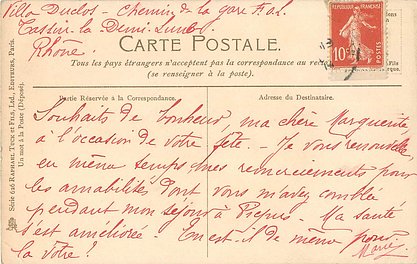 Villa Duclos - Chemin de la gare F.O.L.
Tassin la Demi-Lune
Rhône.
RÉPUBLIQUE FRANÇAISE
10
POSTES
CARTE POSTALE.
Tous les pays étrangers n'acceptent pas la correspondance au
(se renseigner à la poste).
Partie Réservée à la Correspondance.
Adresse du Destinataire.
Souhaits de bonheur, ma chère Marguerite,
à l'occasion de votre fête. - Je vous renouvelle
en même temps mes remerciements pour
les amabilités dont vous m'avez comblée
pendant mon séjour à Picpus. Ma santé
s'est améliorée En est-il de même pour
la vôtre ! Marie
Série 626 RAPHAEL TUCK ET FILS, LTD., EDITEURS, PARIS.
Un mot à la Poste (Déposé).